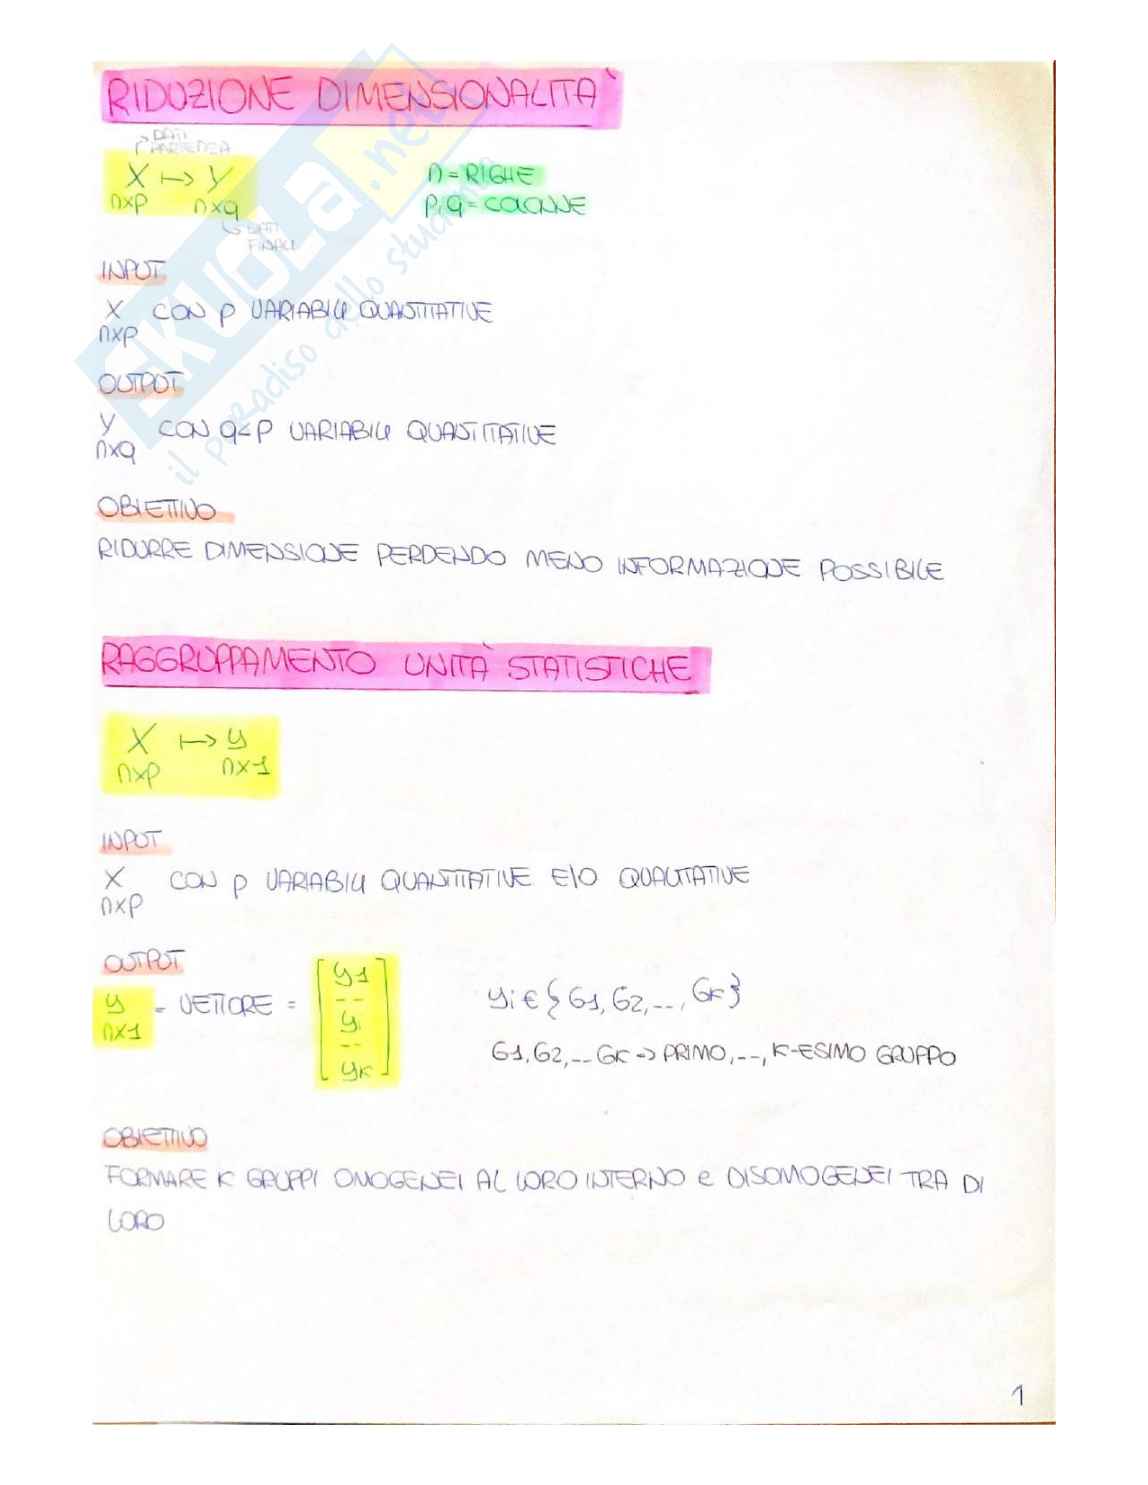 RIDUZIONE DIMENSIONALITÀ
→ DATI
PARTENZA
X ↦ Y
n×p n×q
↳ DATI
FINALI
n = RIGHE
p, q = COLONNE
INPUT
X CON p VARIABILI QUANTITATIVE
n×p
OUTPUT
Y CON q<p VARIABILI QUANTITATIVE
n×q
OBIETTIVO
RIDURRE DIMENSIONE PERDENDO MENO INFORMAZIONE POSSIBILE
RAGGRUPPAMENTO UNITÀ STATISTICHE
X ↦ y
n×p n×1
INPUT
X CON p VARIABILI QUANTITATIVE E/O QUALITATIVE
n×p
OUTPUT
y = VETTORE = [y1 -- yi -- yK]
n×1
yi ∈ {G1, G2, --, GK}
G1, G2, -- GK → PRIMO, --, K-ESIMO GRUPPO
OBIETTIVO
FORMARE K GRUPPI OMOGENEI AL LORO INTERNO e DISOMOGENEI TRA DI
LORO
1
SKUOLA.net
il paradiso dello studente